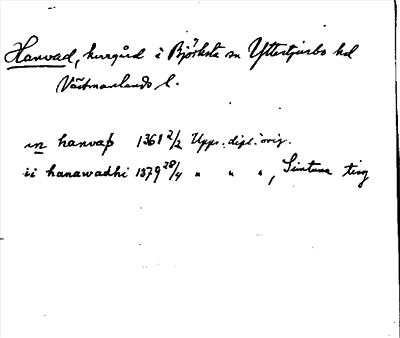 Hanvad, herrgård i Björksta sn Yttertjurbo hd
Västmanlands l.
in hanvaþ 1361 2/2 Upps. dipl. orig.
ii hanawadhi 1379 28/4 " " ", Simtuna ting